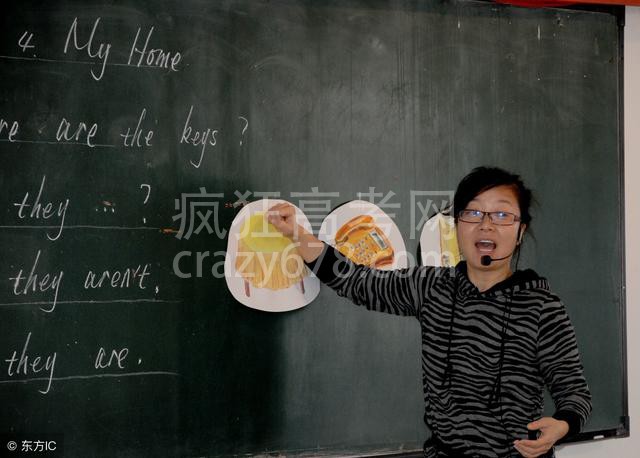 4. My Home
re are the keys?
they ...?
they aren't.
they are.
疯狂高考网
crazy678.com
© 东方IC